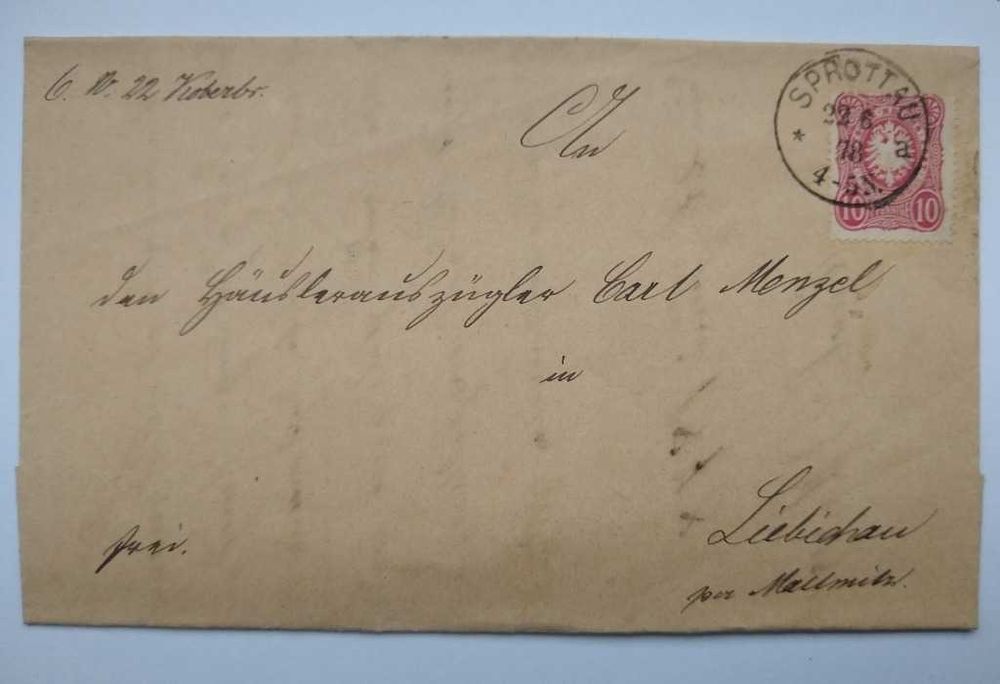 22 Koberbr.
An
SPROTTAU
22 6
78 a
4-5N.
10 10
den Häuslerauszügler Carl Menzel
in
Liebichau
frei.
per Mallmitz.